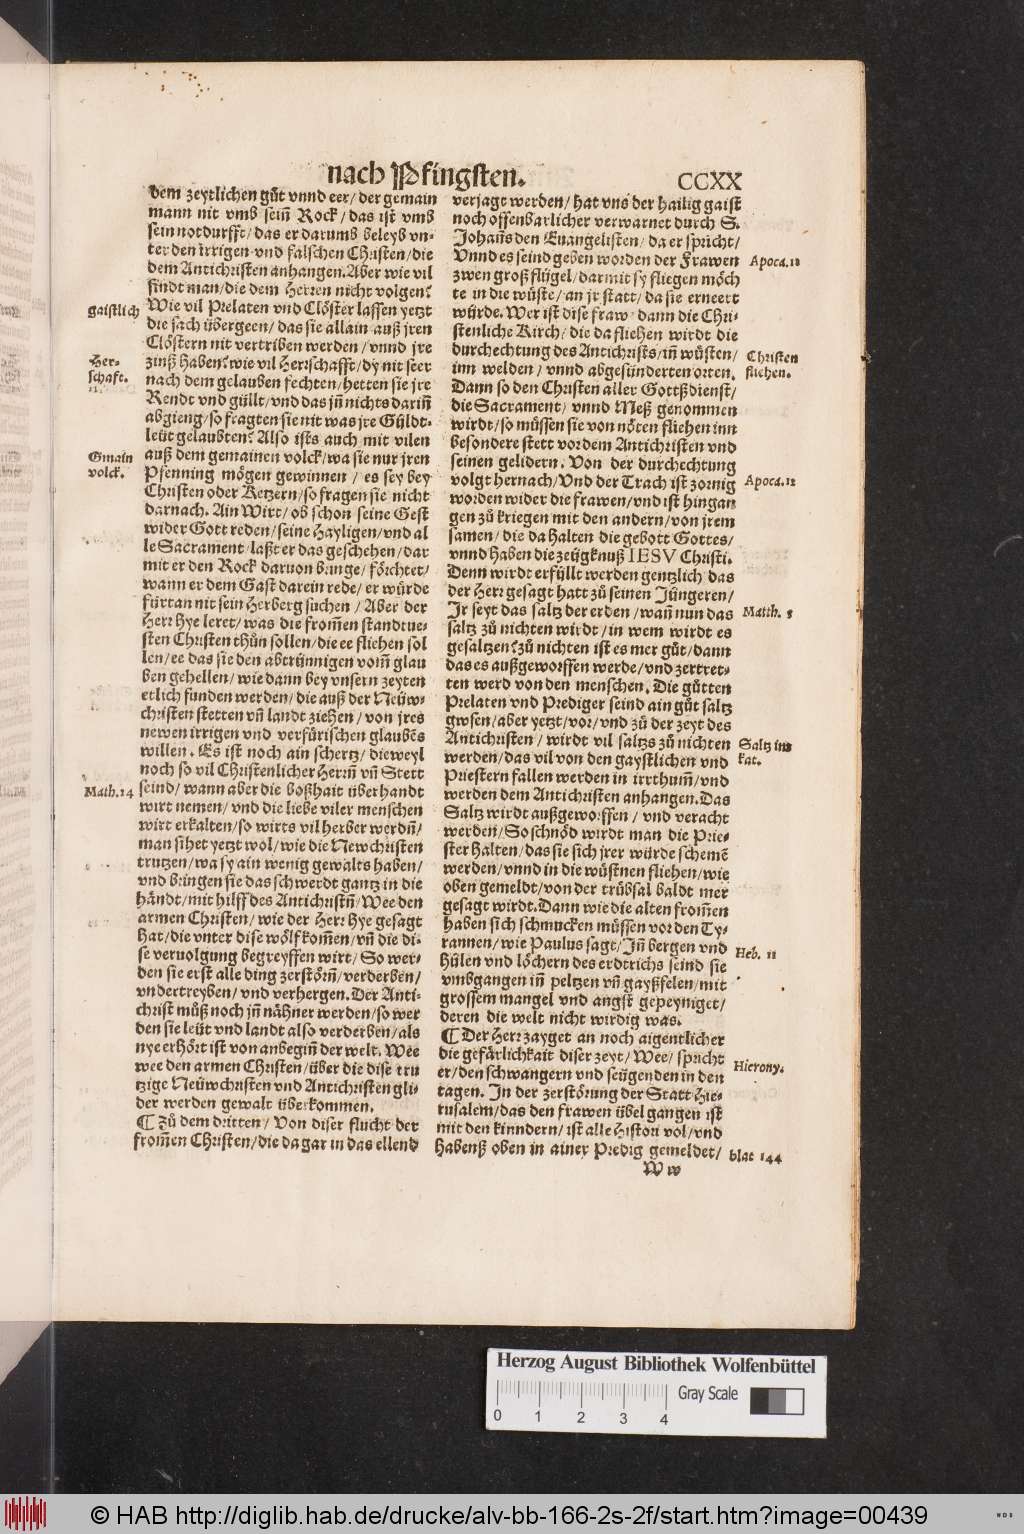 nach Pfingsten. CCXX
dem zeytlichen gůt vnnd eer/ der gemain
mann nit vmb sein̄ Rock/ das ist vmb
sein notdurfft/ das er darumb beleyb vn-
ter den irrigen vnd falschen Christen/ die
dem Antichristen anhangen. Aber wie vil
findt man/ die dem Herren nicht volgen?
gaistlich
Wie vil Prelaten vnd Clöster lassen yetzt
die sach übergeen/ das sie allain auß jren
Clöstern nit vertriben werden/ vnnd jre
Her-
schaft.
zinß haben? wie vil Herrschafft/ dy nit seer
nach dem gelauben fechten/ hetten sie jre
Rendt vnd güllt/ vnd das jn̄ nichts darin̄
abgieng/ so fragten sie nit was jre Güldt-
leüt gelaubten? Also ists auch mit vilen
Gmain
volck.
auß dem gemainen volck/ wa sie nur jren
Pfenning mögen gewinnen/ es sey bey
Christen oder Ketzern/ so fragen sie nicht
darnach. Ain Wirt/ ob schon seine Gest
wider Gott reden/ seine Hayligen/ vnd al
le Sacrament/ laßt er das geschehen/ dar
mit er den Rock daruon bringe/ förchtet/
wann er dem Gast darein rede/ er würde
fürtan nit sein Herberg suchen/ Aber der
Herr hye leret/ was die from̄en standtue-
sten Christen thůn sollen/ die ee fliehen sol
len/ ee das sie den abtrünnigen vom̄ glau
ben gehellen/ wie dann bey vnsern zeyten
etlich funden werden/ die auß der Neüw-
christen stetten vn̄ landt ziehen/ von jres
newen irrigen vnd verfürischen glaubēs
willen. Es ist noch ain schertz/ dieweyl
noch so vil Christenlicher Herrn̄ vn̄ Stett
Math. 24
seind/ wann aber die boßhait überhandt
wirt nemen/ vnd die liebe viler menschen
wirt erkalten/ so wirts vil herber werdn̄/
man sihet yetzt wol/ wie die Newchristen
trutzen/ wa sy ain wenig gewalts haben/
vnd bringen sie das schwerdt gantz in die
händt/ mit hilff des Antichristn̄/ Wee den
armen Christen/ wie der Herr hye gesagt
hat/ die vnter dise wölf kom̄en/ vn̄ die di-
se veruolgung begreyffen wirt/ So wer-
den sie erst alle ding zerstörn̄/ verderben/
vndertreyben/ vnd verhergen. Der Anti-
christ můß noch jn̄ nähner werden/ so wer
den sie leüt vnd landt also verderben/ als
nye erhört ist von anbegin̄ der welt. Wee
wee den armen Christen/ über die dise tru
tzige Neüwchristen vnd Antichristen gli-
der werden gewalt überkommen.
¶ Zů dem dritten/ Von diser flucht der
from̄en Christen/ die da gar in das ellend
verjagt werden/ hat vns der hailig gaist
noch offenbarlicher verwarnet durch S.
Johan̄s den Euangelisten/ da er spricht/
Vnnd es seind geben worden der Frawen
Apoca. 12
zwen groß flügel/ darmit sy fliegen möch
te in die wüste/ an jr statt/ da sie erneert
würde. Wer ist dise fraw/ dann die Chri-
stenliche Kirch/ die da fliehen wirdt die
durchechtung des Antichrists/ in̄ wüsten/
Christen
fliehen.
inn welden/ vnnd abgesünderten orten.
Dann so den Christen aller Gottßdienst/
die Sacrament/ vnnd Meß genommen
wirdt/ so müssen sie von nöten fliehen inn
besondere stett vor dem Antichristen vnd
seinen gelidern. Von der durchechtung
volgt hernach/ Vnd der Trach ist zornig
Apoca. 12
worden wider die frawen/ vnd ist hingan
gen zů kriegen mit den andern/ von jrem
samen/ die da halten die gebott Gottes/
vnnd haben die zeügknuß IESV Christi.
Denn wirdt erfüllt werden gentzlich das
der Herr gesagt hatt zů seinen Jüngeren/
Jr seyt das saltz der erden/ wan̄ nun das
Matth. 5
saltz zů nichten wirdt/ in wem wirdt es
gesaltzen? zů nichten ist es mer gůt/ dann
das es außgeworffen werde/ vnd zertret-
ten werd von den menschen. Die gůtten
Prelaten vnd Prediger seind ain gůt saltz
gwsen/ aber yetzt/ vor/ vnd zů der zeyt des
Antichristen/ wirdt vil saltzs zů nichten
Saltz im
kat.
werden/ das vil von den gaystlichen vnd
Priestern fallen werden in irrthum̄/ vnd
werden dem Antichristen anhangen. Das
Saltz wirdt außgeworffen/ vnd veracht
werden/ So schnöd wirdt man die Prie-
ster halten/ das sie sich jrer würde schemē
werden/ vnnd in die wüstnen fliehen/ wie
oben gemeldt/ von der trübsal baldt mer
gesagt wirdt. Dann wie die alten from̄en
haben sich schmucken müssen vor den Ty-
rannen/ wie Paulus sagt/ Jn̄ bergen vnd
Heb. 11
hülen vnd löchern des erdtrichs seind sie
vmbgangen in̄ peltzen vn̄ gayßfelen/ mit
grossem mangel vnd angst gepeyniget/
deren die welt nicht wirdig was.
¶ Der Herr zayget an noch aigentlicher
die gefärlichkait diser zeyt/ Wee/ spricht
Hierony.
er/ den schwangern vnd seügenden in den
tagen. In der zerstörung der Statt Hie-
rusalem/ das den frawen übel gangen ist
mit den kinndern/ ist alle Histori vol/ vnd
habenß oben in ainer Predig gemeldet/
blat 144
Ww
Herzog August Bibliothek Wolfenbüttel
Gray Scale
0 1 2 3 4
© HAB http://diglib.hab.de/drucke/alv-bb-166-2s-2f/start.htm?image=00439